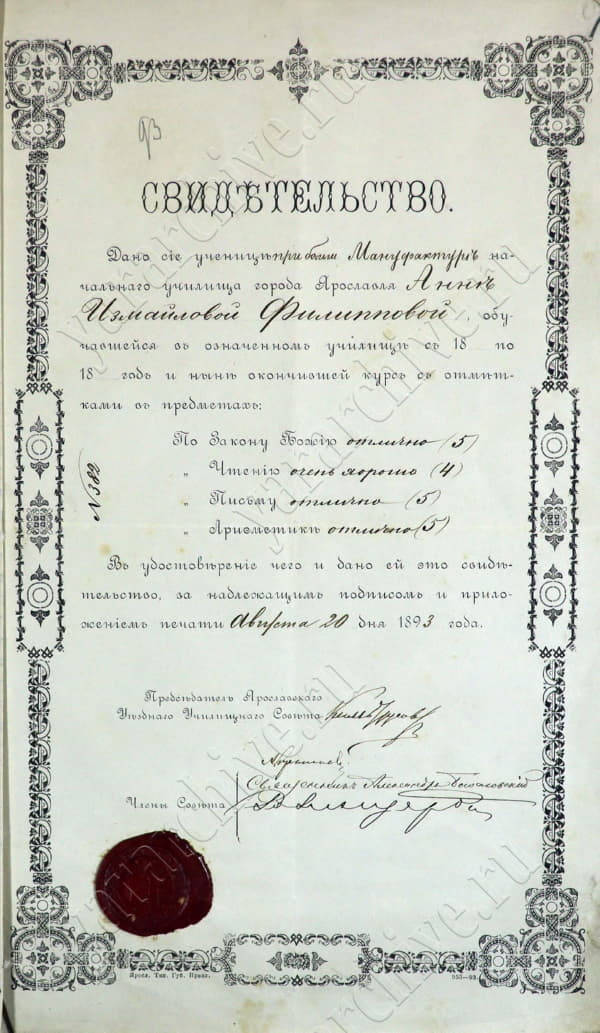 93
СВИДѢТЕЛЬСТВО.
Дано сіе ученицѣ при большой Мануфактурѣ на-
чальнаго училища города Ярославля Аннѣ
Измайловой Филипповой, обу-
чавшейся въ означенномъ училищѣ съ 18 по
18 годъ и нынѣ окончившей курсъ съ отмѣт-
ками въ предметахъ:
По Закону Божію отлично (5)
„ Чтенію очень хорошо (4)
„ Письму отлично (5)
„ Ариѳметикѣ отлично (5)
N 382
Въ удостовѣреніе чего и дано ей это свидѣ-
тельство, за надлежащимъ подписомъ и прило-
женіемъ печати Августа 20 дня 1893 года.
Предсѣдатель Ярославскаго
Уѣзднаго Училищнаго Совѣта
Члены Совѣта
Священникъ Александръ
Яросл. Тип. Губ. Правл.
yararchive.ru
yararchive.ru
yararchive.ru
yararchive.ru